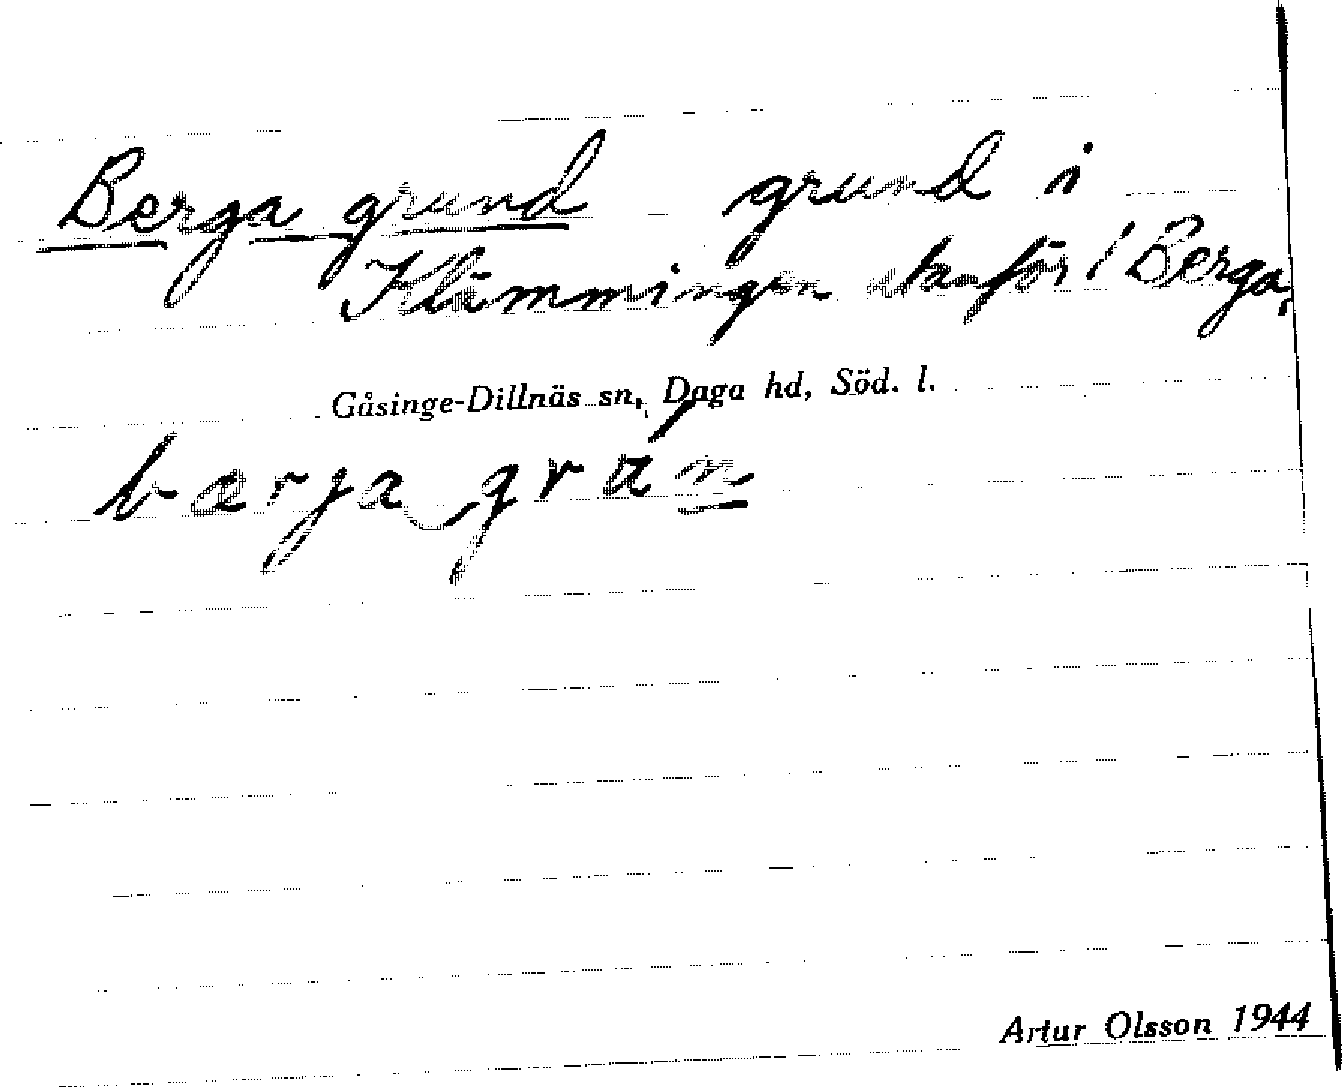 Berga grund grund i
Klämmingen utanför 1 Berga,
Gåsinge-Dillnäs sn, Daga hd, Söd. l.
bærja grún
Artur Olsson 1944